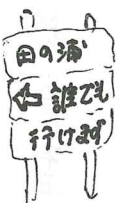 田の浦
⇦ 誰でも
行けます